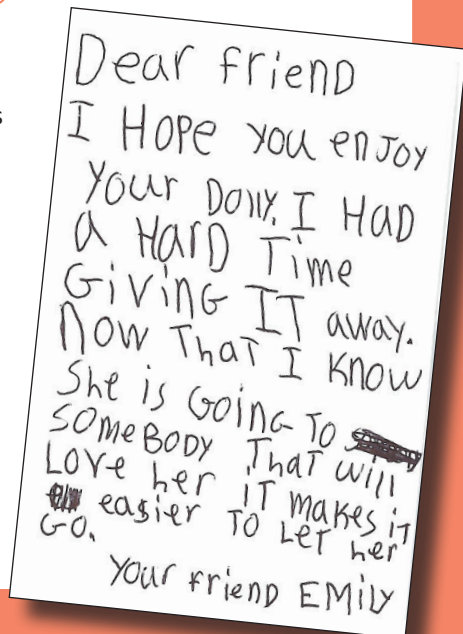 s
Dear friend
I Hope you enjoy
your Dolly. I Had
a Hard Time
Giving IT away.
Now That I Know
She is Going To
SomeBody That will
Love her IT makes it
easier To Let her
Go.
Your friend EMily